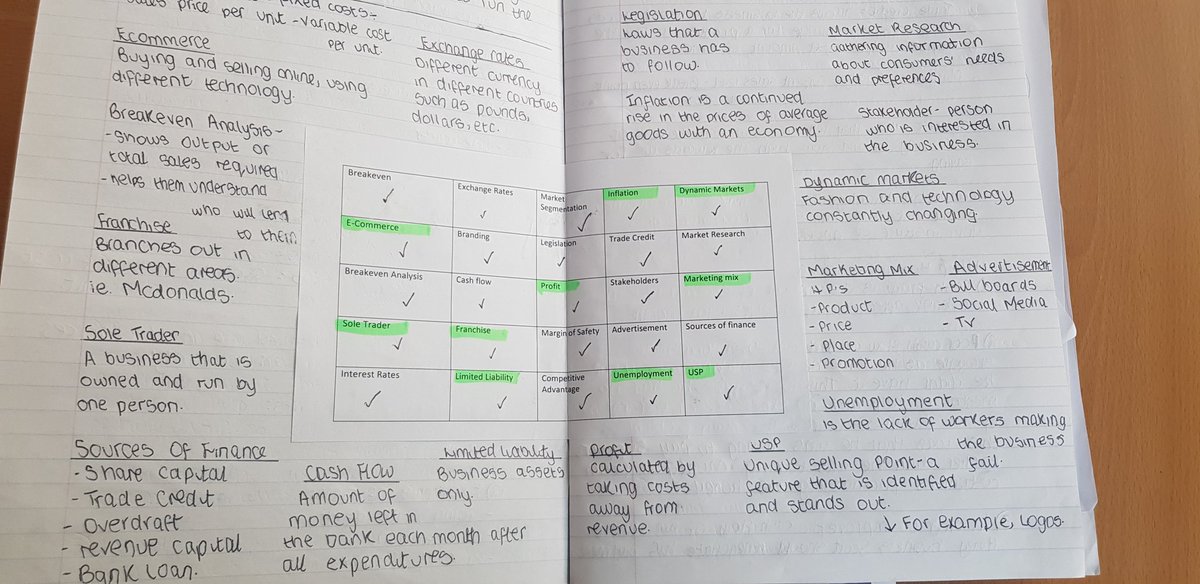 run the
fixed costs-
sales price per unit - variable cost
per unit.
Ecommerce
Buying and selling online, using
different technology.
Exchange rates
Different currency
in different countries
such as pounds,
dollars, etc.
Breakeven Analysis-
- shows output or
total sales required
- helps them understand
who will lend
to them
Franchise
Branches out in
different areas.
ie. Mcdonalds.
Sole Trader
A business that is
owned and run by
one person.
Sources Of Finance
- Share capital
- Trade Credit
- overdraft
- revenue capital
- Bank loan.
Cash Flow
Amount of
money left in
the bank each month after
all expenditures.
Limited liability
Business assets
only.
Breakeven
Exchange Rates
Market
Segmentation
Inflation
Dynamic Markets
E-Commerce
Branding
Legislation
Trade Credit
Market Research
Breakeven Analysis
Cash flow
Profit
Stakeholders
Marketing mix
Sole Trader
Franchise
Margin of Safety
Advertisement
Sources of finance
Interest Rates
Limited Liability
Competitive
Advantage
Unemployment
USP
Legislation
Laws that a
business has
to follow.
Market Research
Gathering information
about consumers' needs
and preferences
Inflation is a continued
rise in the prices of average
goods with an economy.
Stakeholder- person
who is interested in
the business.
Dynamic markets
Fashion and technology
constantly changing.
Marketing Mix
4 P's
- Product
- Price
- Place
- Promotion
Advertisement
- Bill boards
- Social Media
- TV
Unemployment
is the lack of workers making
the business
fail.
Profit
calculated by
taking costs
away from
revenue.
USP
Unique selling point- a
feature that is identified
and stands out.
↓ For example, Logos.